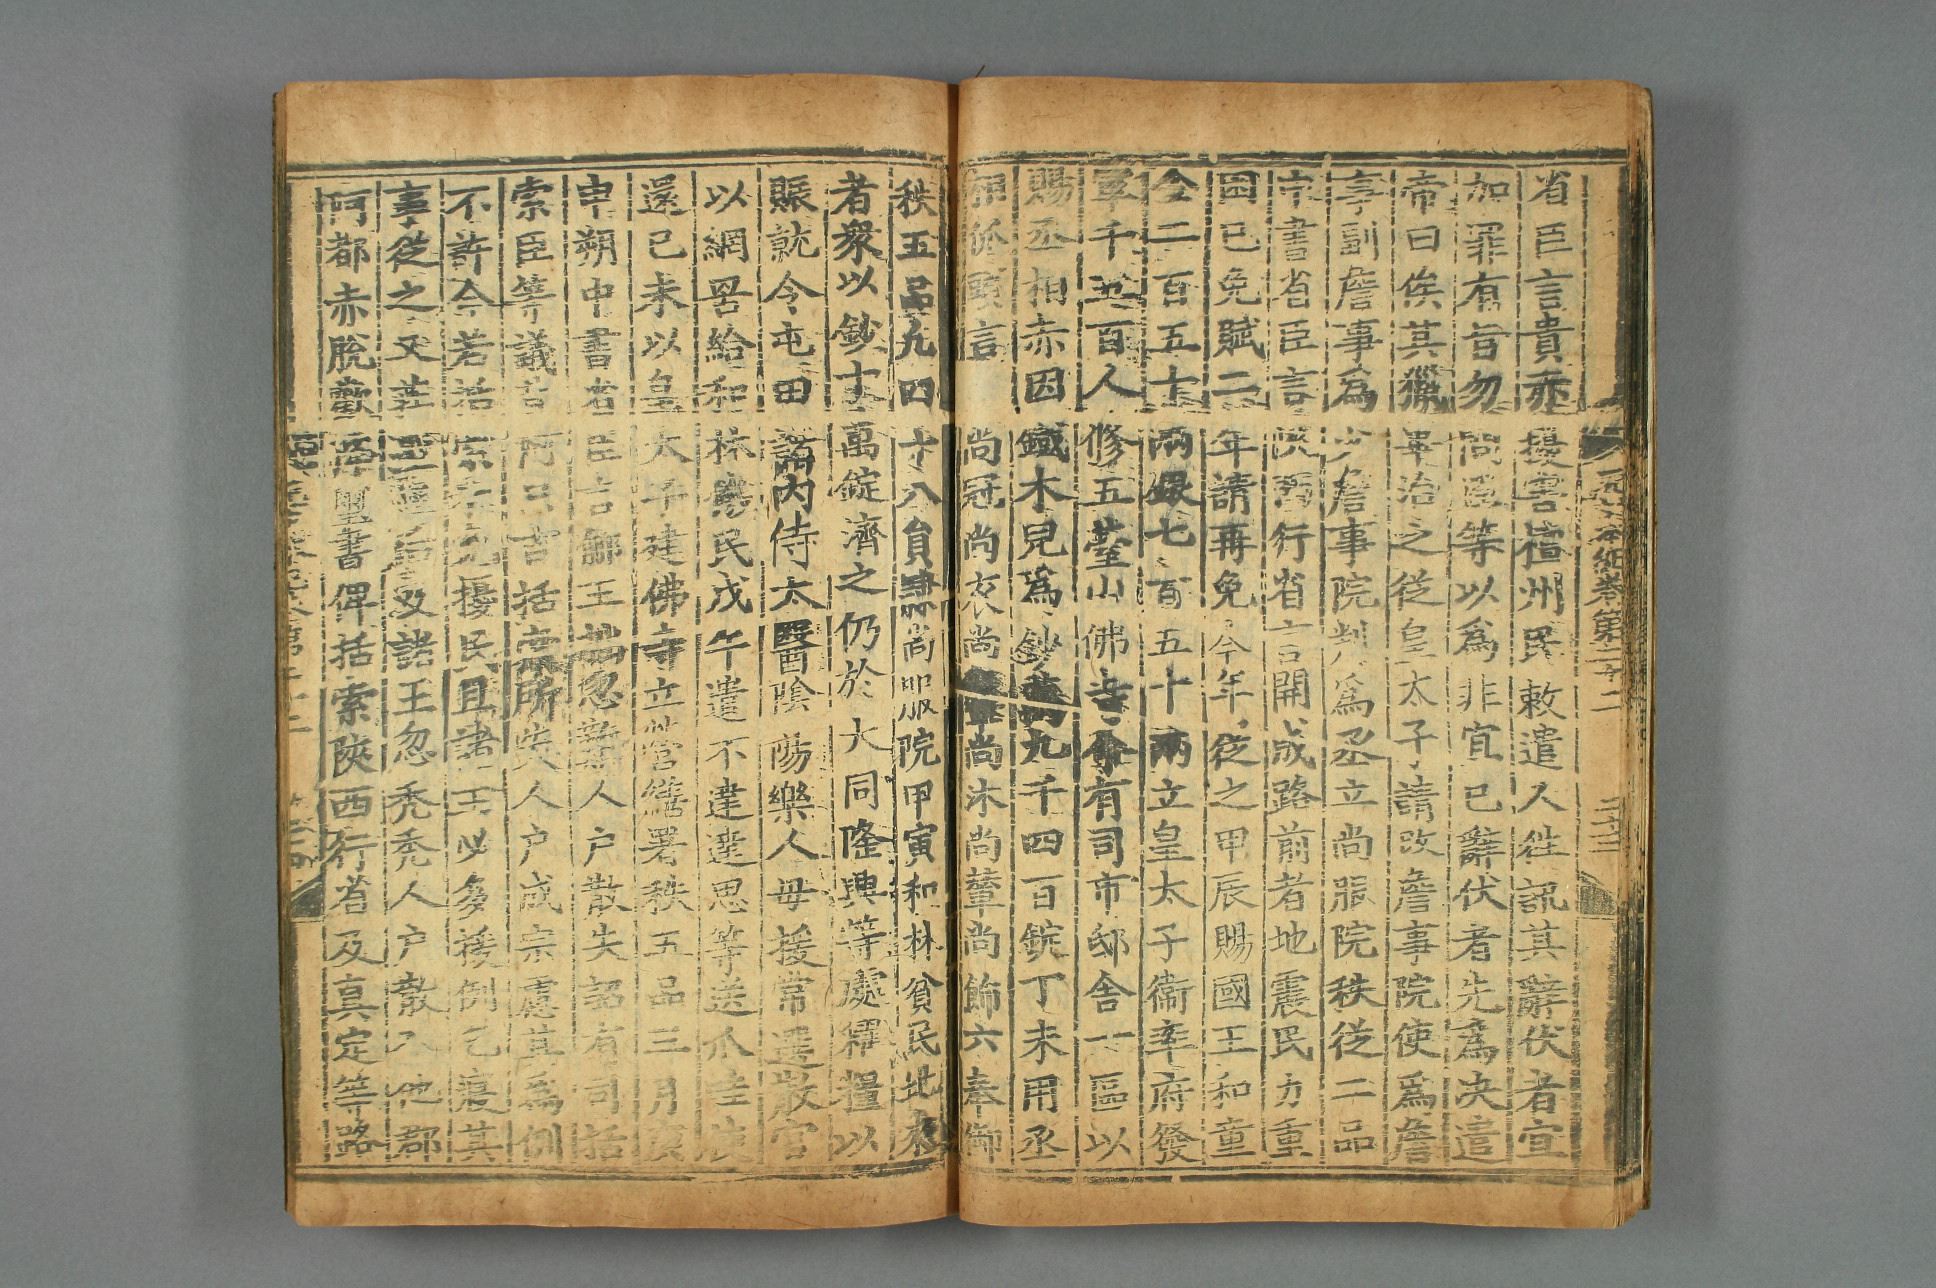 元史本紀卷第二十二 三十三
省臣言貴赤擾害檀州民敕遣人往訊其辭伏者宜
加罪有旨勿問臣等以爲非宜已辭伏者先爲决遣
帝曰俟其獵畢治之從皇太子請改詹事院使爲詹
事副詹事爲少詹事院判爲丞立尚服院秩從二品
中書省臣言陝西行省言開成路前者地震民力重
困已免賦二年請再免今年從之甲辰賜國王和童
金二百五十兩銀七百五十兩立皇太子衛率府發
軍千五百人修五臺山佛寺命有司市邸舍一區以
賜丞相赤因鐵木兒爲鈔萬四九千四百錠丁未用丞
相 言 尚冠尚衣尚 尚沐尚輦尚飾六奉御
秩五品凡四十八員隷尚服院甲寅和林貧民北來
者衆以鈔十萬錠濟之仍於大同隆興等處糴糧以
賑就令屯田 內侍太醫陰陽樂人毋援常選散官
以網罟給和林饑民戊午遣不達達思等送爪 使
還己未以皇太子建佛寺立營繕署秩五品三月庚
申朔中書省臣言鄃王 忽 人户散失詔有司括
索臣等議 括索所失人户成宗慮其爲例
不許今若括索 擾民且諸王必多援例乞寢其
事從之又 及諸王忽禿禿人户散入他郡
阿都赤脫歡 璽書俾括索陝西行省及真定等路